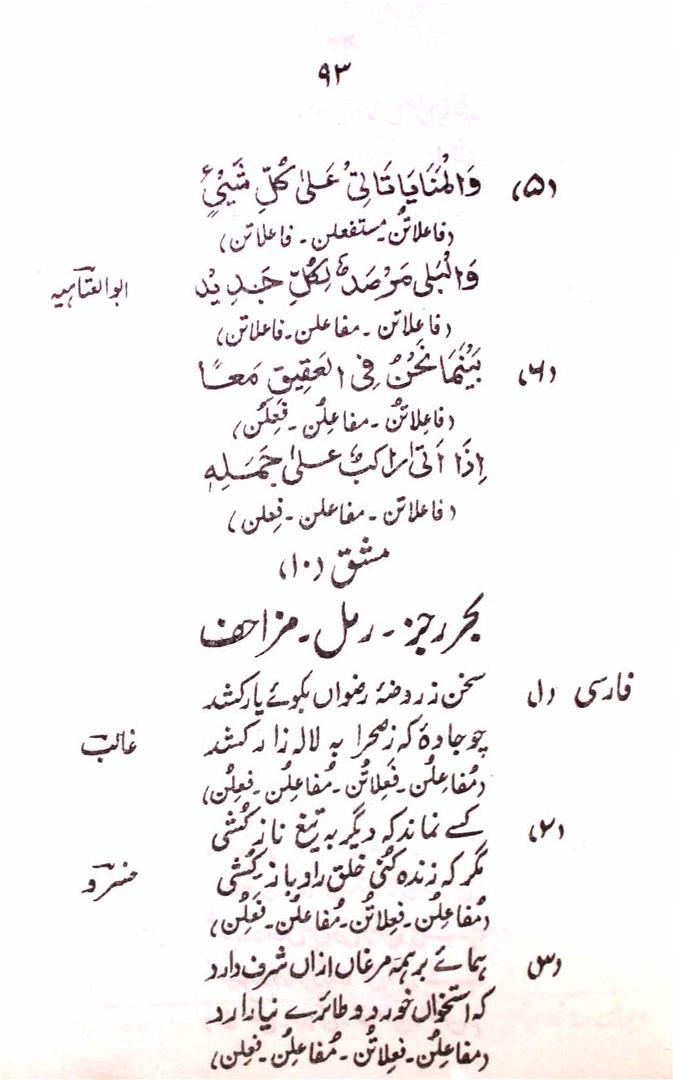 ۹۳
(۵) وَالْمَنَايَا تَاتِىْ عَلىٰ كُلِّ شَيْئٍ
(فاعلاتن۔مستفعلن۔فاعلاتن)
وَالْبَلى مَرْصَدٌ لِكُلِّ جَدِيْد ابوالعتاہیہ
(فاعلاتن۔مفاعلن۔فاعلاتن)
(۶) بَيْنَمَا نَحْنُ فِى العَقِيْقِ مَعًا
(فاعلاتن۔مفاعلن۔فَعِلُن)
اِذَا اَتىٰ راكبٌ علىٰ جَمَلِهٖ
(فاعلاتن۔مفاعلن۔فعلن)
مشق (۱۰)
بحر رجز۔رمل۔مزاحف
فارسی (۱) سخن ز روضۂ رضواں بکوئے یار کشد
چو جادۂ کہ ز صحرا بہ لالہ زار کشد غالب
(مُفاعلُن۔فَعِلاتُن۔مُفاعلُن۔فعِلُن)
(۲) کسے نماند کہ دیگر بہ تیغ ناز کُشی
مگر کہ زندہ کُنی خلق را و باز کُشی خسرو
(مُفاعلُن۔فعِلاتُن۔مُفاعلُن۔فَعِلُن)
(۳) ہمائے بر ہمہ مرغاں ازاں شرف دارد
کہ استخواں خورد و طائرے نیازارد
(مفاعلُن۔فعِلاتُن۔مُفاعلُن۔فعِلن)